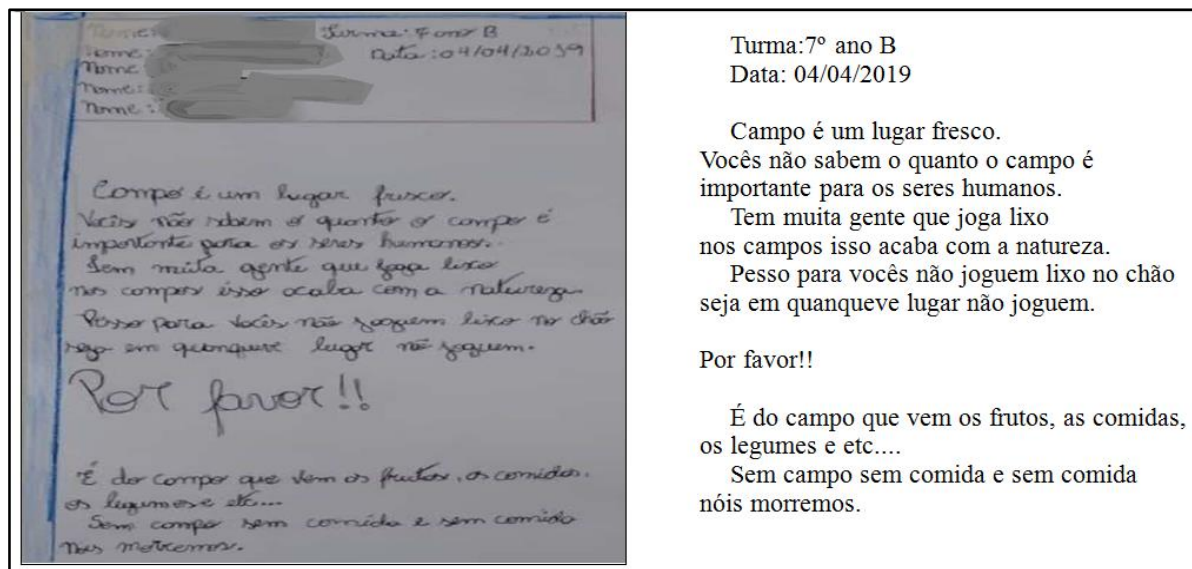 Nome: Turma: 7 ano B
Nome: Data: 04/04/2019
Nome
Nome:
Nome:
Campo é um lugar fresco.
Vocês não sabem o quanto o campo é
importante para os seres humanos.
Tem muita gente que joga lixo
nos campos isso acaba com a natureza
Pesso para vocês não joguem lixo no chão
seja em quanqueve lugar não joguem.
Por favor!!
É do campo que vem os frutos, as comidas,
os legumes e etc...
Sem campo sem comida e sem comida
nóis morremos.
Turma:7º ano B
Data: 04/04/2019
Campo é um lugar fresco.
Vocês não sabem o quanto o campo é
importante para os seres humanos.
Tem muita gente que joga lixo
nos campos isso acaba com a natureza.
Pesso para vocês não joguem lixo no chão
seja em quanqueve lugar não joguem.
Por favor!!
É do campo que vem os frutos, as comidas,
os legumes e etc....
Sem campo sem comida e sem comida
nóis morremos.